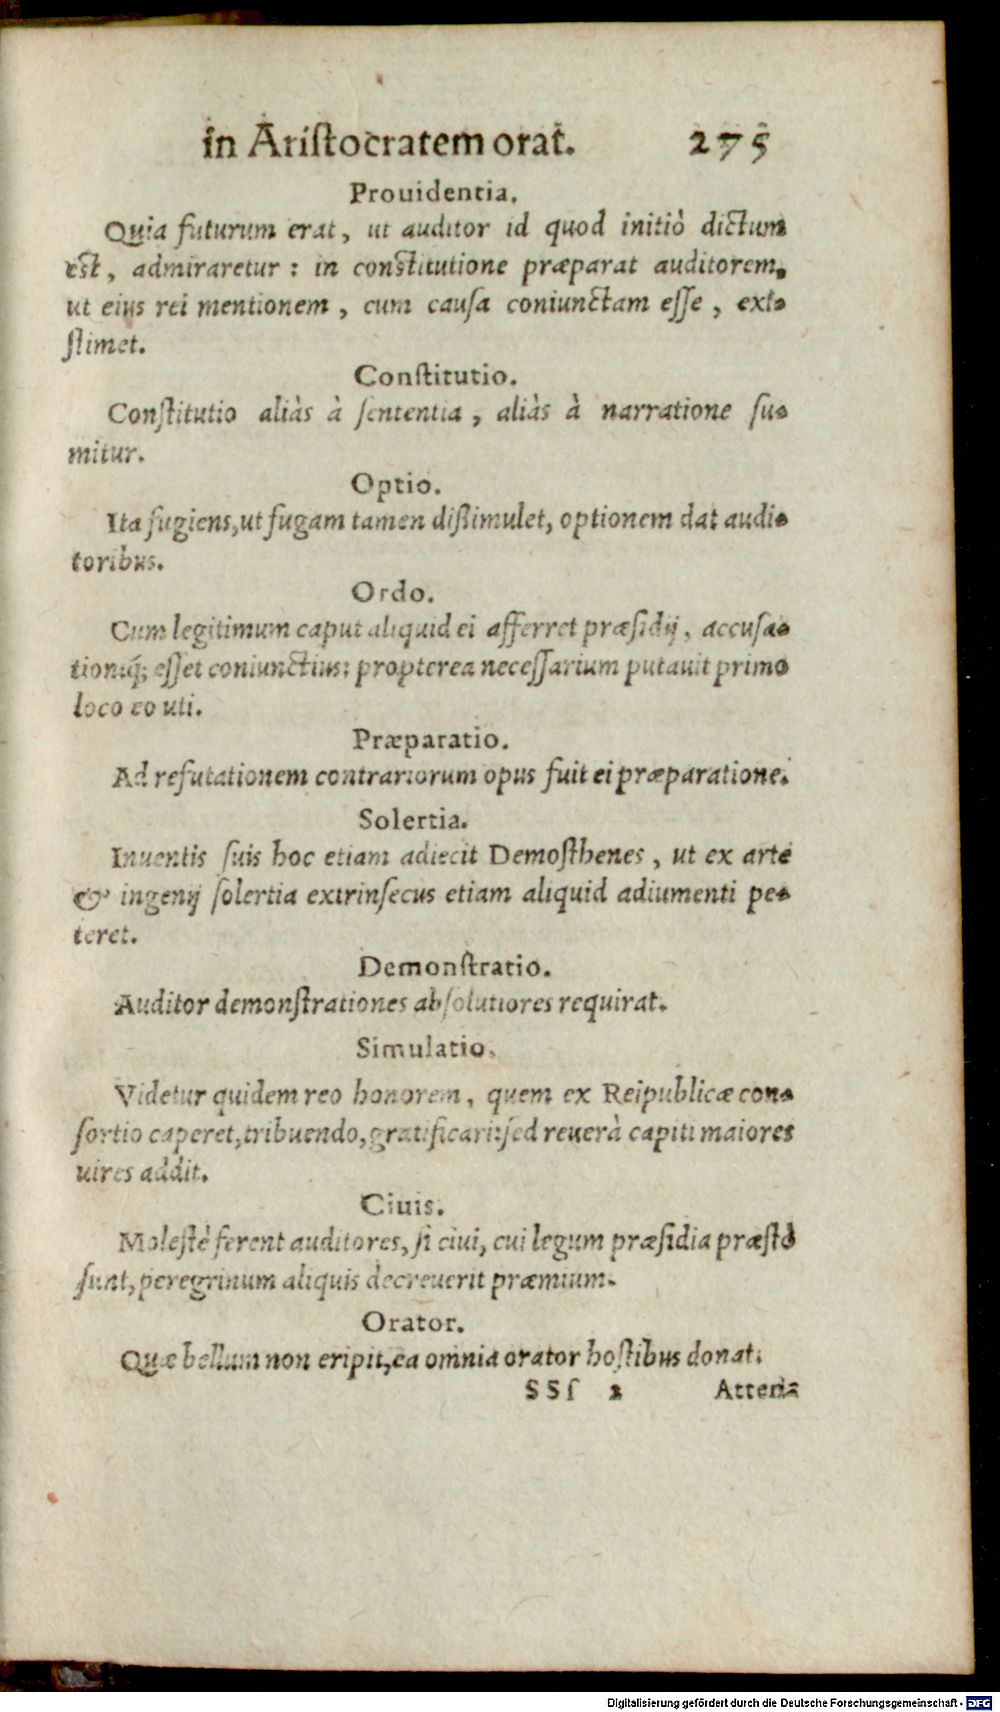 in Aristocratem orat. 275
Prouidentia.
Quia futurum erat, ut auditor id quod initiò dictum
est, admiraretur: in constitutione præparat auditorem,
ut eius rei mentionem, cum causa coniunctam esse, exi-
stimet.
Constitutio.
Constitutio aliàs à sententia, aliàs à narratione su-
mitur.
Optio.
Ita fugiens, ut fugam tamen dißimulet, optionem dat audi-
toribus.
Ordo.
Cum legitimum caput aliquid ei afferret præsidij, accusa-
tioniq́; esset coniunctius: propterea necessarium putauit primo
loco eo uti.
Præparatio.
Ad refutationem contrariorum opus fuit ei præparatione.
Solertia.
Inuentis suis hoc etiam adiecit Demosthenes, ut ex arte
& ingenij solertia extrinsecus etiam aliquid adiumenti pe-
teret.
Demonstratio.
Auditor demonstrationes absolutiores requirat.
Simulatio.
Videtur quidem reo honorem, quem ex Reipublicæ con-
sortio caperet, tribuendo, gratificari: sed reuerà capiti maiores
uires addit.
Ciuis.
Molestè ferent auditores, si ciui, cui legum præsidia præstò
sunt, peregrinum aliquis decreuerit præmium.
Orator.
Quæ bellum non eripit, ea omnia orator hostibus donat.
SSſ 2 Atteria
Digitalisierung gefördert durch die Deutsche Forschungsgemeinschaft - DFG